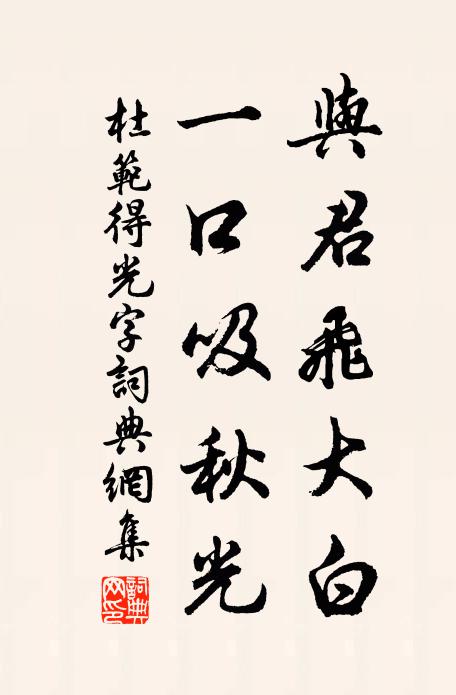 與君飛大白
一口吸秋光
杜範得光字詞典網集
詞典網印